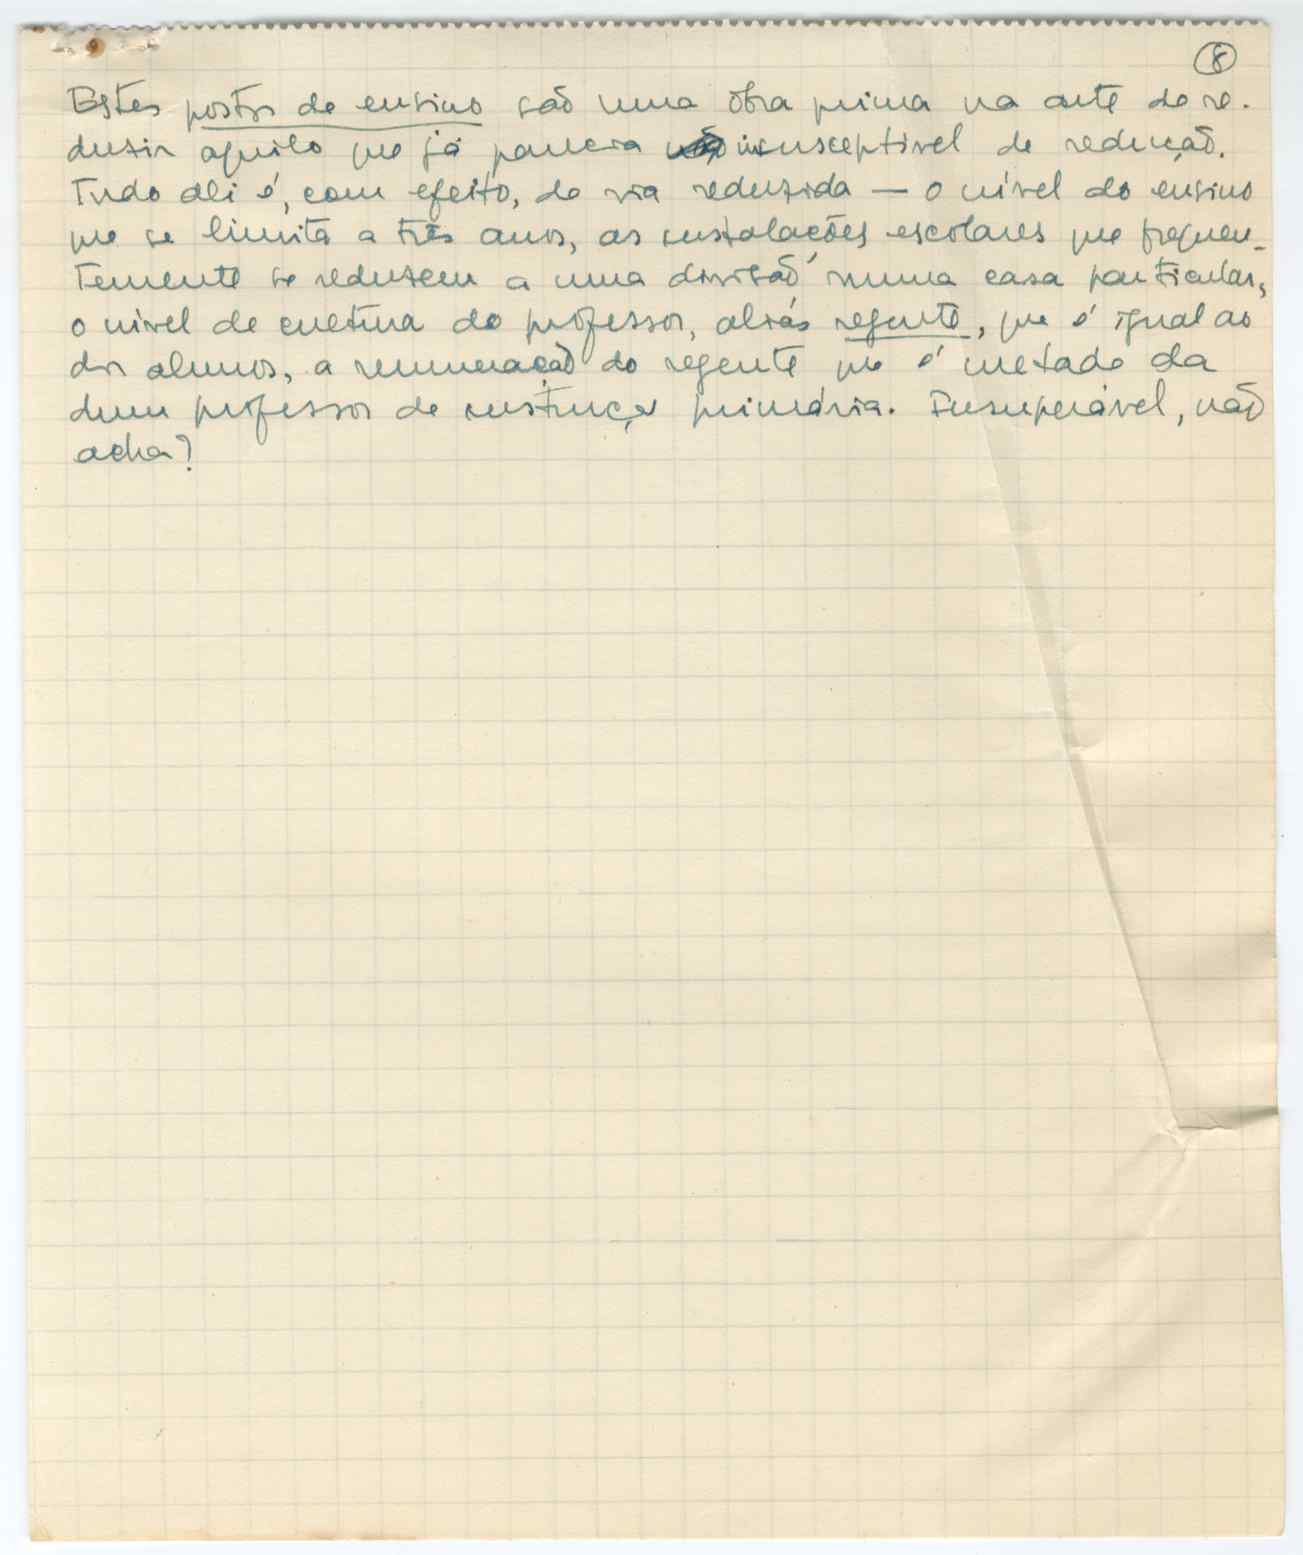 8
Estes postos de ensino são uma obra prima na arte de re-
duzir aquilo que já parecia insusceptivel de redução.
Tudo ali é, com efeito, de via reduzida — o nível do ensino
que se limita a três anos, as instalações escolares que frequen-
temente se reduzem a uma divisão numa casa particular,
o nivel de cultura do professor, aliás regente, que é igual ao
dos alunos, a remuneração do regente que é metade da
dum professor de instrução primária. Insuperável, não
acha?